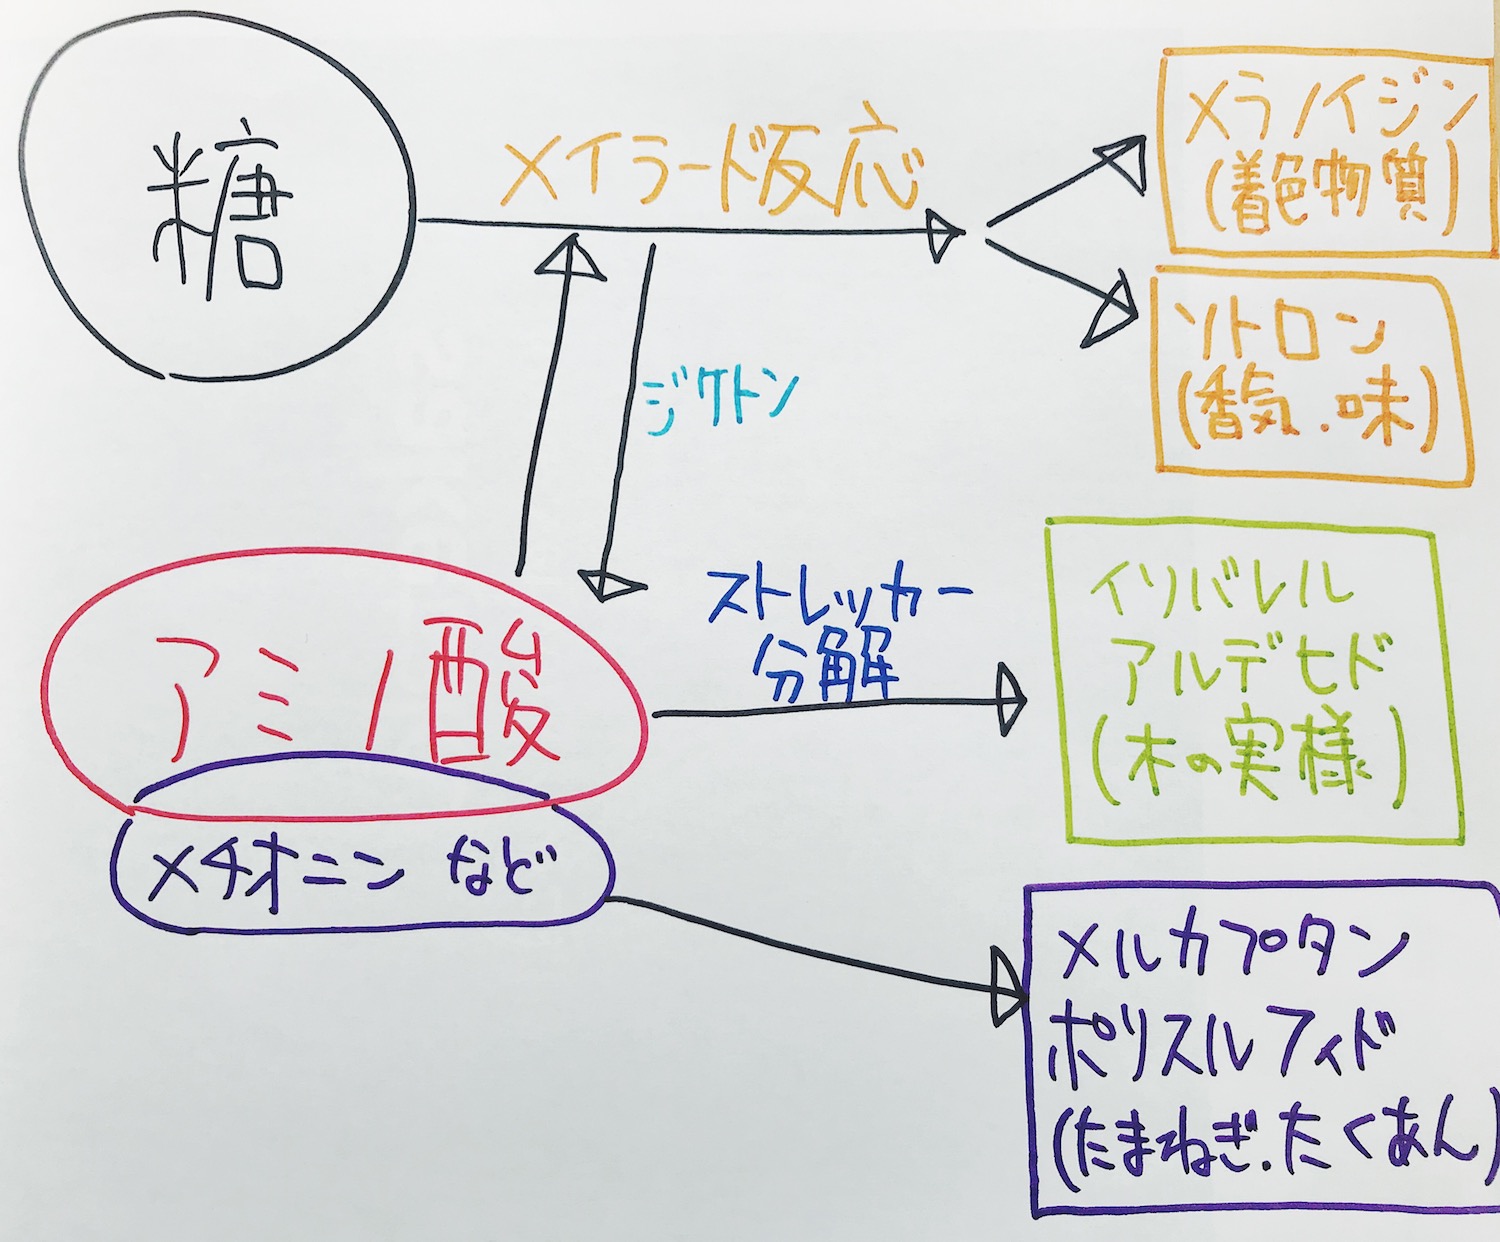 糖
メイラード反応
メラノイジン
(着色物質)
ソトロン
(香気.味)
ジケトン
アミノ酸
ストレッカー
分解
イソバレル
アルデヒド
(木の実様)
メチオニン など
メルカプタン
ポリスルフィド
(たまねぎ.たくあん)